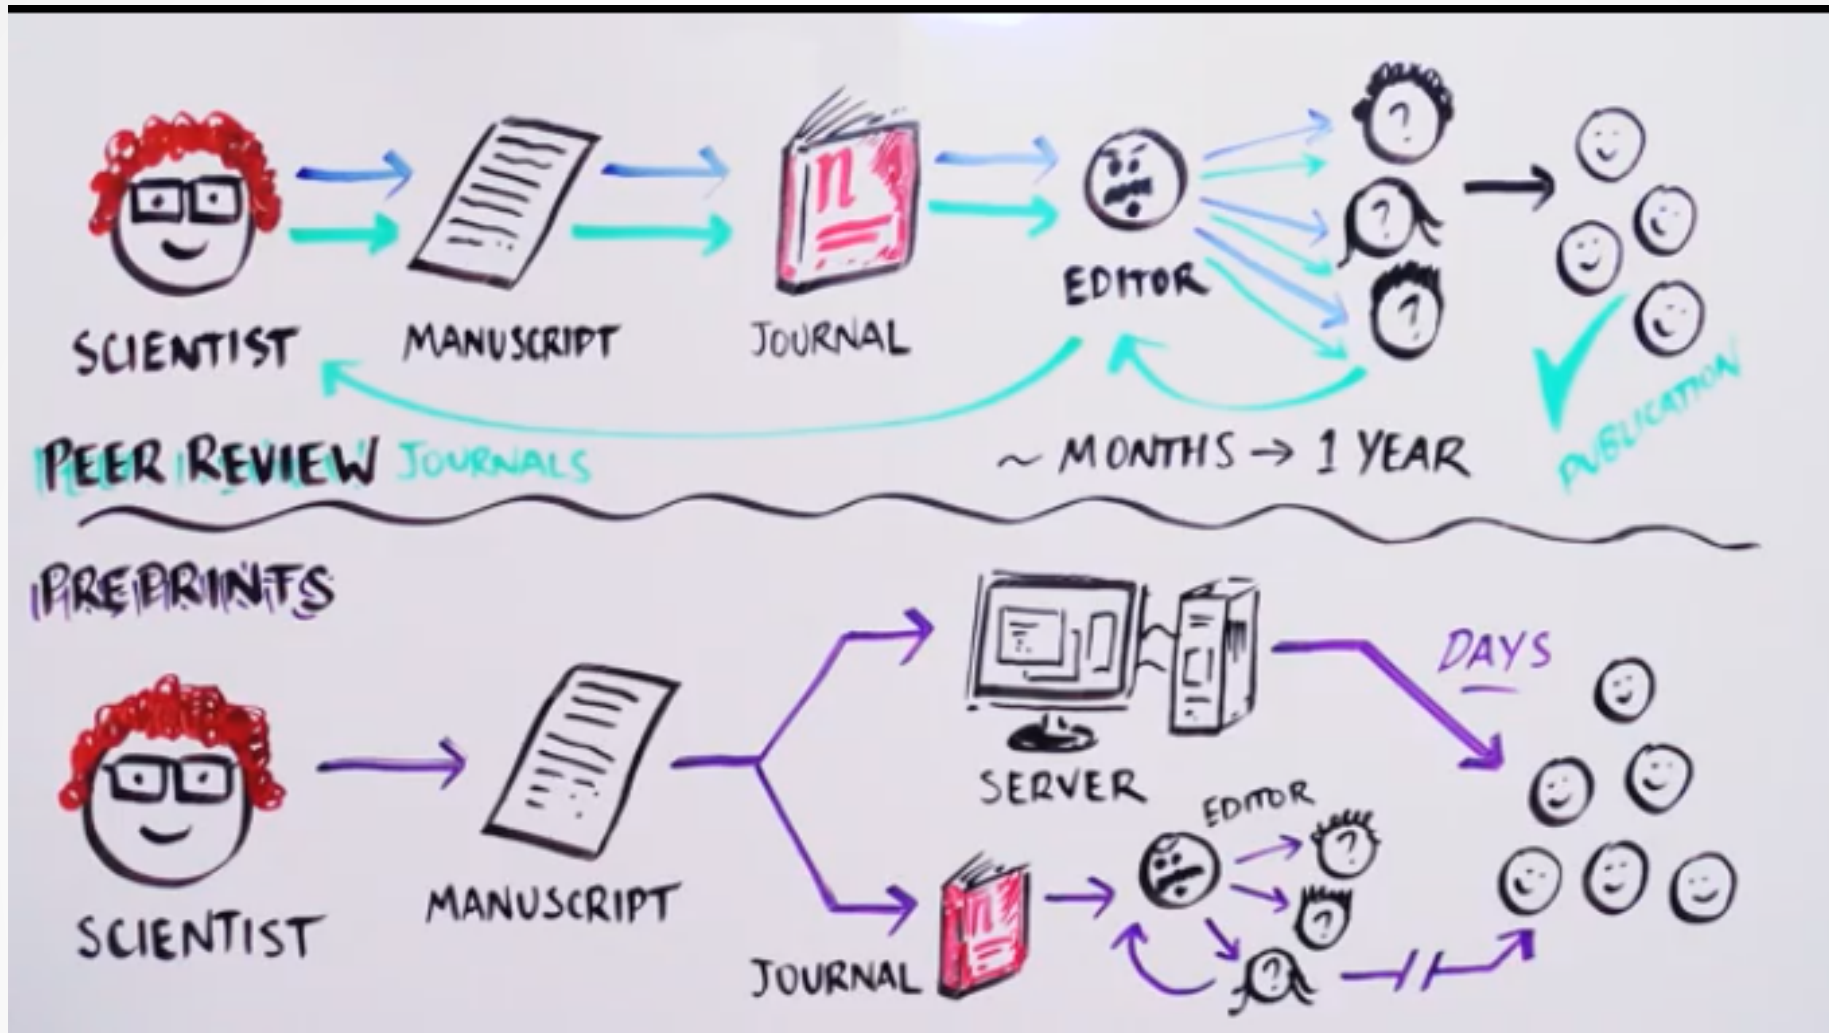 SCIENTIST
MANUSCRIPT
JOURNAL
n
EDITOR
?
?
?
PUBLICATION
PEER REVIEW JOURNALS
~ MONTHS → 1 YEAR
PREPRINTS
SCIENTIST
MANUSCRIPT
SERVER
DAYS
JOURNAL
n
EDITOR
?
?
?